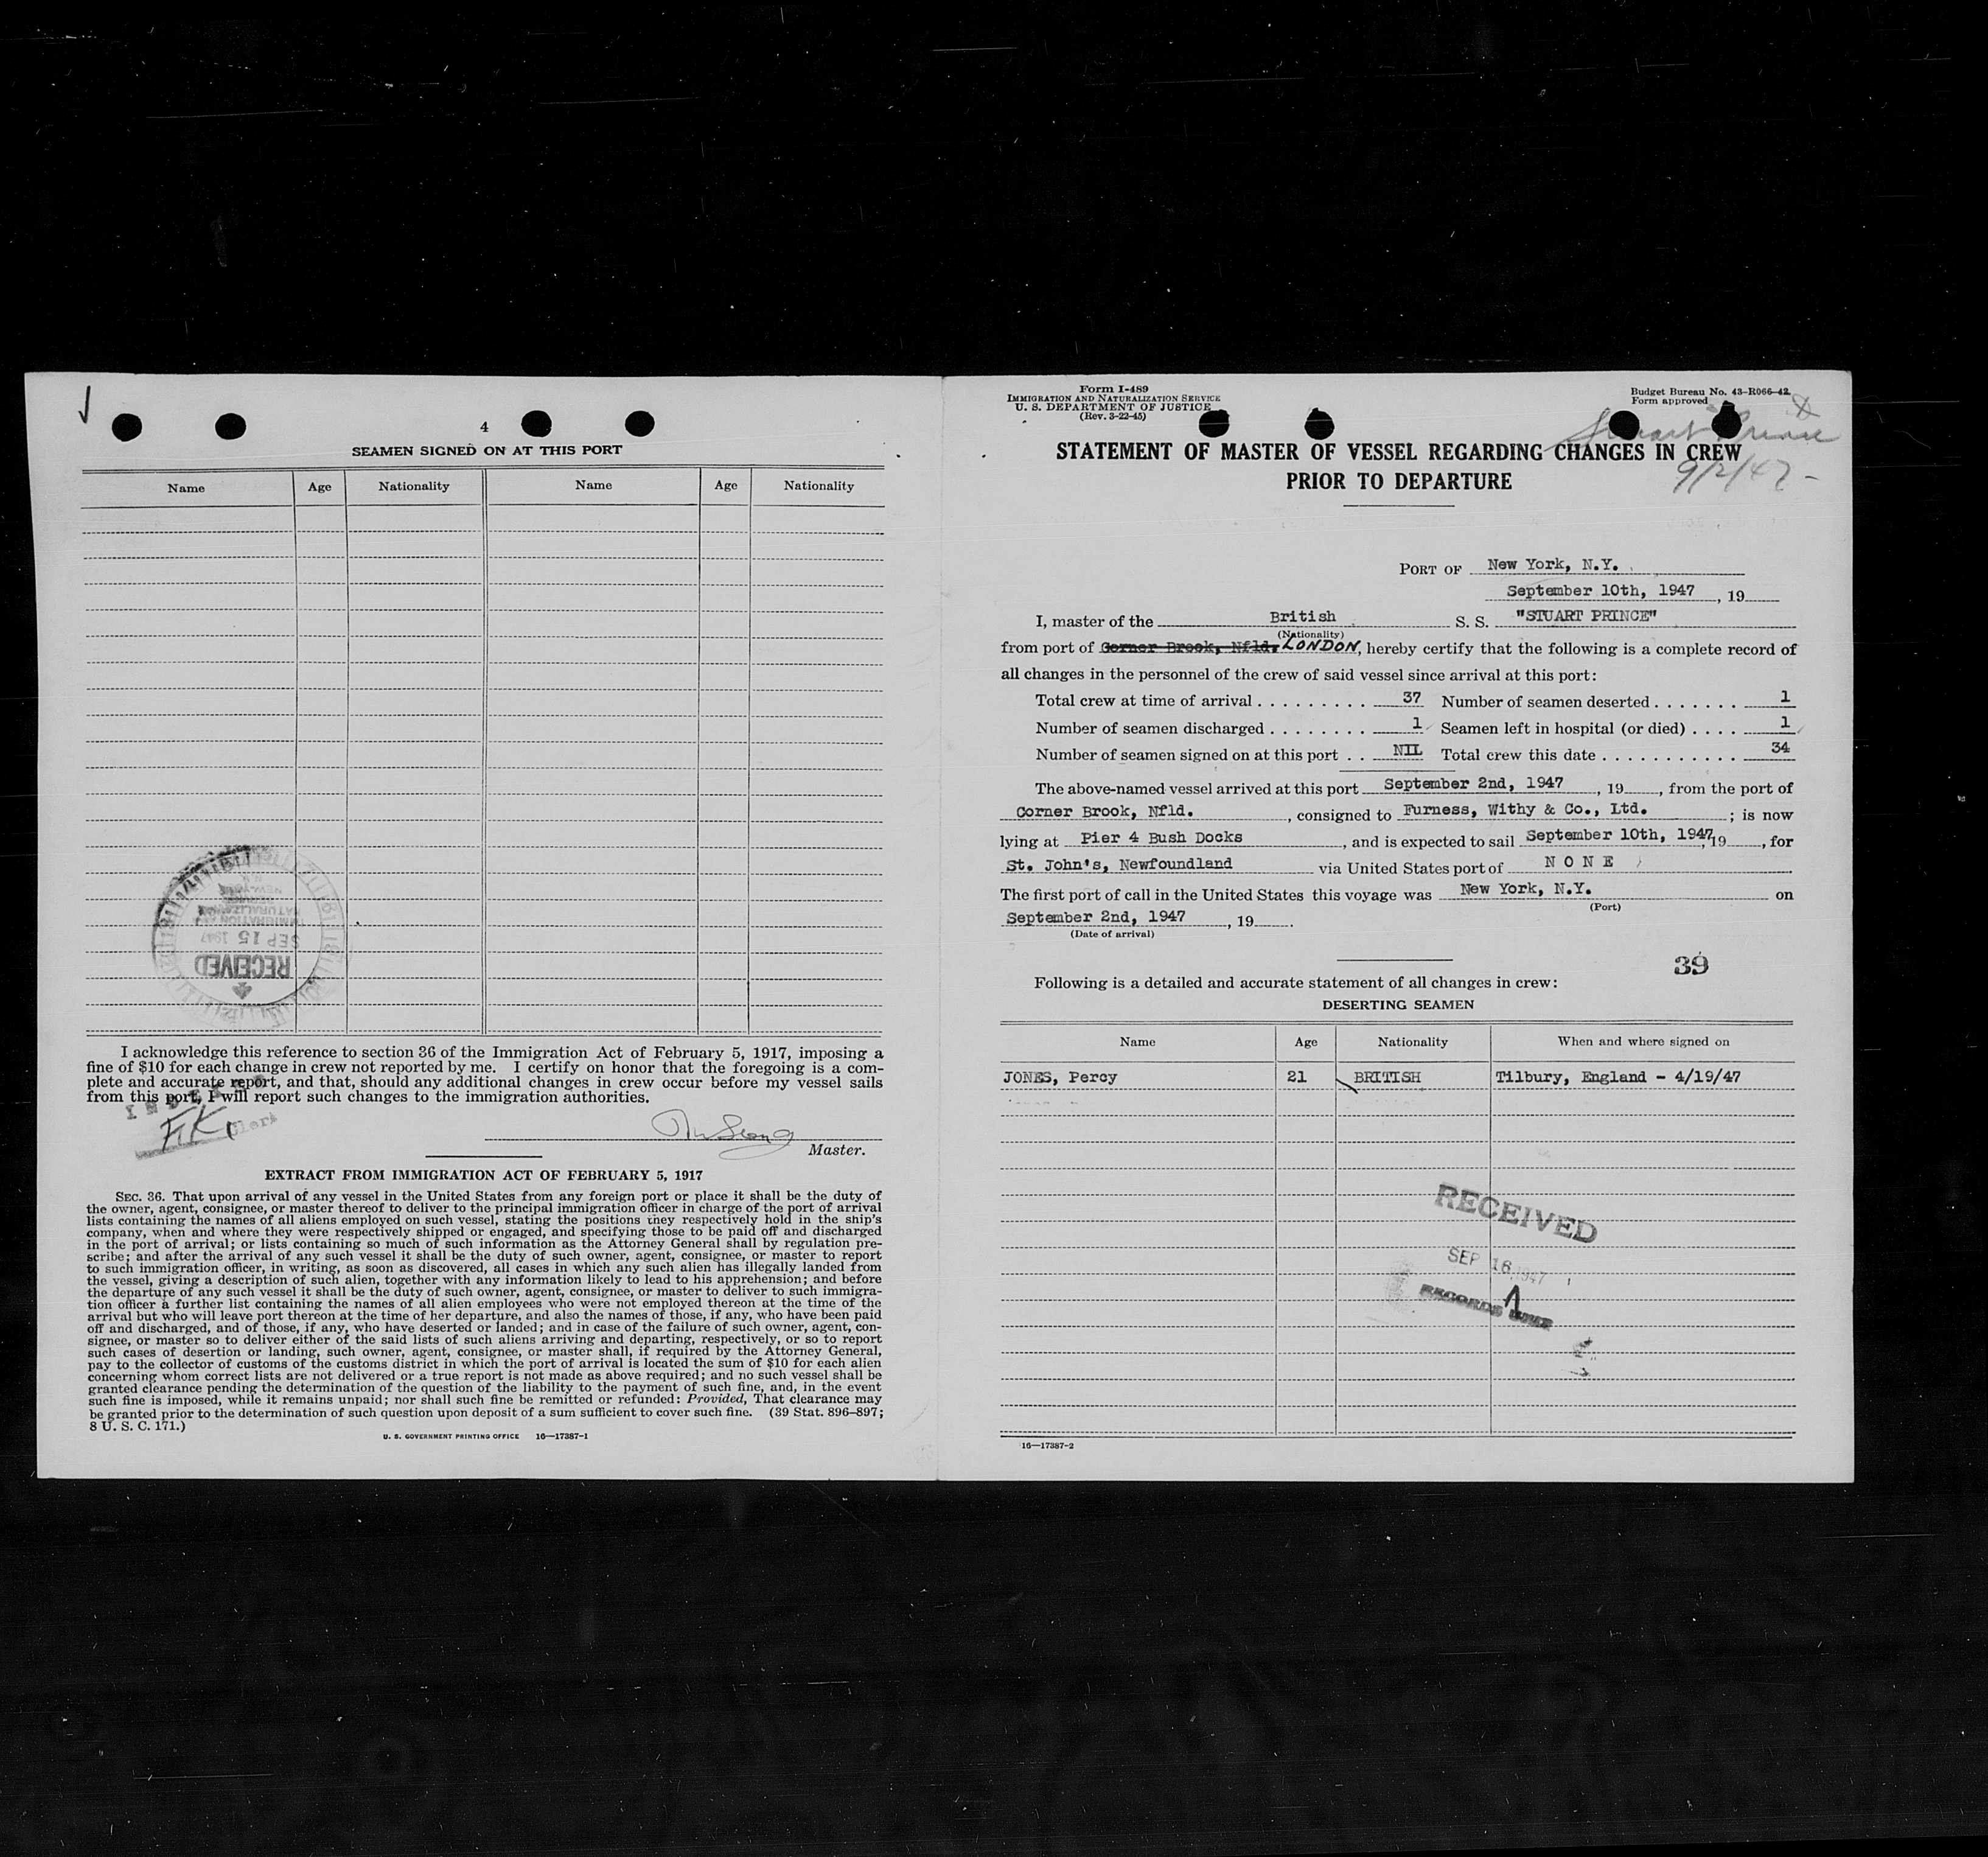 4
SEAMEN SIGNED ON AT THIS PORT
Name Age Nationality Name Age Nationality
RECEIVED
SEP 15 1947
IMMIGRATION AND
NATURALIZATION
SERVICE
NEW YORK
I acknowledge this reference to section 36 of the Immigration Act of February 5, 1917, imposing a
fine of $10 for each change in crew not reported by me. I certify on honor that the foregoing is a com-
plete and accurate report, and that, should any additional changes in crew occur before my vessel sails
from this port, I will report such changes to the immigration authorities.
Clerk
Master.
EXTRACT FROM IMMIGRATION ACT OF FEBRUARY 5, 1917
SEC. 36. That upon arrival of any vessel in the United States from any foreign port or place it shall be the duty of
the owner, agent, consignee, or master thereof to deliver to the principal immigration officer in charge of the port of arrival
lists containing the names of all aliens employed on such vessel, stating the positions they respectively hold in the ship's
company, when and where they were respectively shipped or engaged, and specifying those to be paid off and discharged
in the port of arrival; or lists containing so much of such information as the Attorney General shall by regulation pre-
scribe; and after the arrival of any such vessel it shall be the duty of such owner, agent, consignee, or master to report
to such immigration officer, in writing, as soon as discovered, all cases in which any such alien has illegally landed from
the vessel, giving a description of such alien, together with any information likely to lead to his apprehension; and before
the departure of any such vessel it shall be the duty of such owner, agent, consignee, or master to deliver to such immigra-
tion officer a further list containing the names of all alien employees who were not employed thereon at the time of the
arrival but who will leave port thereon at the time of her departure, and also the names of those, if any, who have been paid
off and discharged, and of those, if any, who have deserted or landed; and in case of the failure of such owner, agent, con-
signee, or master so to deliver either of the said lists of such aliens arriving and departing, respectively, or so to report
such cases of desertion or landing, such owner, agent, consignee, or master shall, if required by the Attorney General,
pay to the collector of customs of the customs district in which the port of arrival is located the sum of $10 for each alien
concerning whom correct lists are not delivered or a true report is not made as above required; and no such vessel shall be
granted clearance pending the determination of the question of the liability to the payment of such fine, and, in the event
such fine is imposed, while it remains unpaid; nor shall such fine be remitted or refunded: Provided, That clearance may
be granted prior to the determination of such question upon deposit of a sum sufficient to cover such fine. (39 Stat. 896–897;
8 U. S. C. 171.)
U. S. GOVERNMENT PRINTING OFFICE 16—17387-1
Form I-489
IMMIGRATION AND NATURALIZATION SERVICE
U. S. DEPARTMENT OF JUSTICE
(Rev. 3-22-45)
Budget Bureau No. 43-R066-42
Form approved
Stuart Prince
9/2/47 -
STATEMENT OF MASTER OF VESSEL REGARDING CHANGES IN CREW
PRIOR TO DEPARTURE
PORT OF New York, N.Y.
September 10th, 1947, 19
I, master of the British S. S. "STUART PRINCE"
(Nationality)
from port of Corner Brook, Nfld. LONDON, hereby certify that the following is a complete record of
all changes in the personnel of the crew of said vessel since arrival at this port:
Total crew at time of arrival . . . . . . . . . 37 Number of seamen deserted . . . . . . . 1
Number of seamen discharged . . . . . . . . 1 Seamen left in hospital (or died) . . . . 1
Number of seamen signed on at this port . . NIL Total crew this date . . . . . . . . . . . 34
The above-named vessel arrived at this port September 2nd, 1947, 19, from the port of
Corner Brook, Nfld., consigned to Furness, Withy & Co., Ltd.; is now
lying at Pier 4 Bush Docks, and is expected to sail September 10th, 1947, 19, for
St. John's, Newfoundland via United States port of N O N E
The first port of call in the United States this voyage was New York, N.Y. on
(Port)
September 2nd, 1947, 19.
(Date of arrival)
39
Following is a detailed and accurate statement of all changes in crew:
DESERTING SEAMEN
Name Age Nationality When and where signed on
JONES, Percy 21 BRITISH Tilbury, England - 4/19/47
RECEIVED
SEP 16 1947
RECORDS
16—17387-2